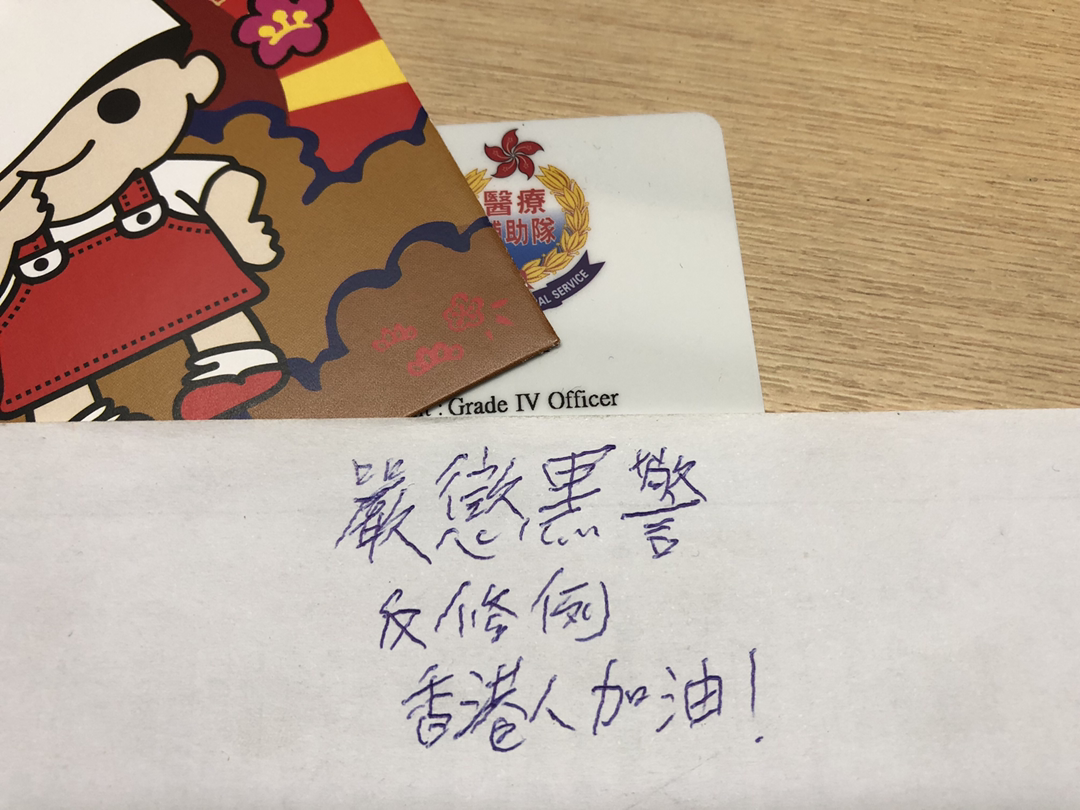 醫療
助隊
AL SERVICE
: Grade IV Officer
嚴懲黑警
反修例
香港人加油!